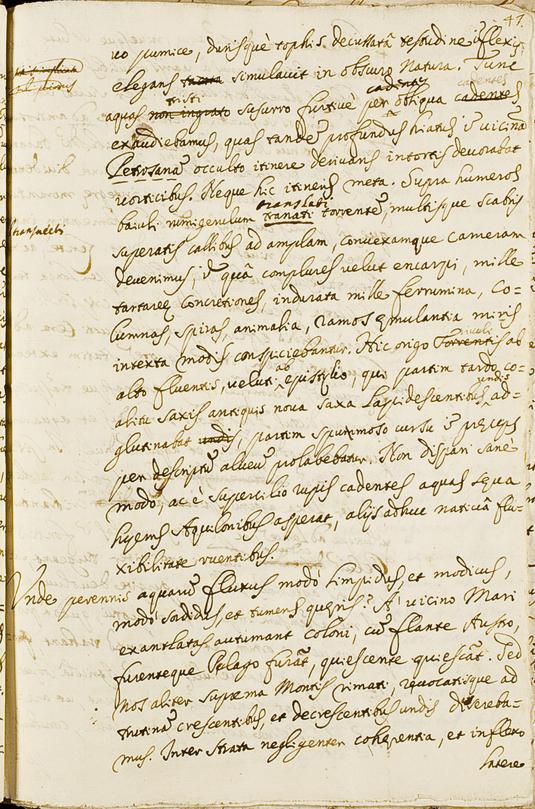 47.
vo pumice, durisquè tophis decussatā testudine inflexis,
elegans simulavit in obscuro Natura. Tunc
cadentes
aquas non ingrato tristi susurro furtivè per obliqua cadentes
exaudiebamus, quas tandē profundus hiatus in vicinā
Petrosanā occulto itinere derivans intortis devorabat
vorticibus. Neque hic itineris meta. Supra humeros
translabi
baiuli numigerulum tranati torrentē, multisque scabris
superatis callibus ad amplam, convexamque cameram
devenimus, in quâ complures velut encarpi, mille
tartareę concretiones, indurata mille ferrumina, co-
lumnas, spiras, animalia, ramos ęmulantia miris
intexta modis conspiciebantur. Hic origo Torrentis rivuli ab
alto fluentis, velut ab epistylio, qui partim tardo co-
undis
alitu saxis antiquis nova saxa lapidescentibus ad-
glutinabat undis, partim spumoso cursu in pręceps
per descriptū alveū prolabebatur. Non dispari sanè
modo, ac è supercilio rupis cadentes aquas sęva
hyems Aquilonibus asperat, alijs adhuc nativâ flu-
xibilitate ruentibus.
Unde perennis aquarū fluxus modo limpidus, et modicus,
modo sordidus, et tumens quęris? A' vicino Mari
exantlatas autumant coloni, cū flante Austro,
furenteque Pelago furāt, quiescente quiescāt. Sed
nos aliter suprema Montis rimati, revocatisque ad
trutinā crescentibus, et decrescentibus undis disseruba-
mus. Inter strata negligenter cohęrentia, et inflexo
latere